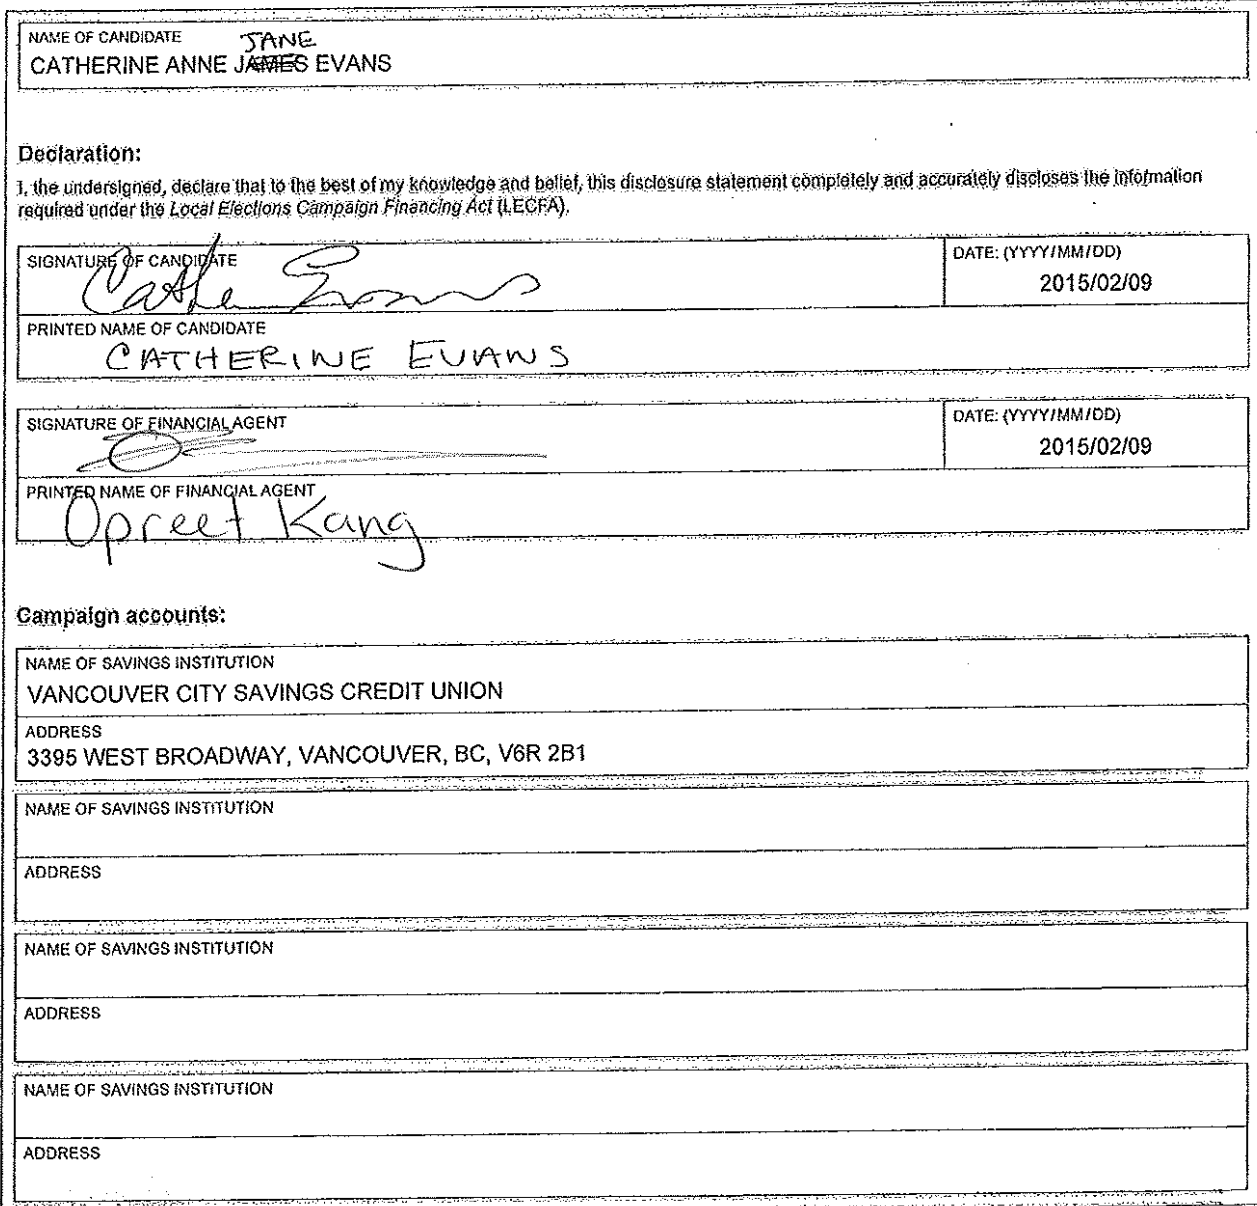 NAME OF CANDIDATE
JANE
CATHERINE ANNE JAMES EVANS
Declaration:
I, the undersigned, declare that to the best of my knowledge and belief, this disclosure statement completely and accurately discloses the information
required under the Local Elections Campaign Financing Act (LECFA).
SIGNATURE OF CANDIDATE
DATE: (YYYY/MM/DD)
Cathe Evans
2015/02/09
PRINTED NAME OF CANDIDATE
CATHERINE EVANS
SIGNATURE OF FINANCIAL AGENT
DATE: (YYYY/MM/DD)
2015/02/09
PRINTED NAME OF FINANCIAL AGENT
Opreet Kang
Campaign accounts:
NAME OF SAVINGS INSTITUTION
VANCOUVER CITY SAVINGS CREDIT UNION
ADDRESS
3395 WEST BROADWAY, VANCOUVER, BC, V6R 2B1
NAME OF SAVINGS INSTITUTION
ADDRESS
NAME OF SAVINGS INSTITUTION
ADDRESS
NAME OF SAVINGS INSTITUTION
ADDRESS